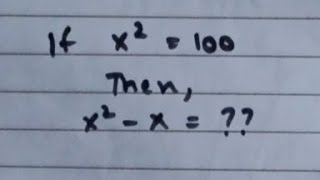 If x² = 100
Then,
x² - x = ??